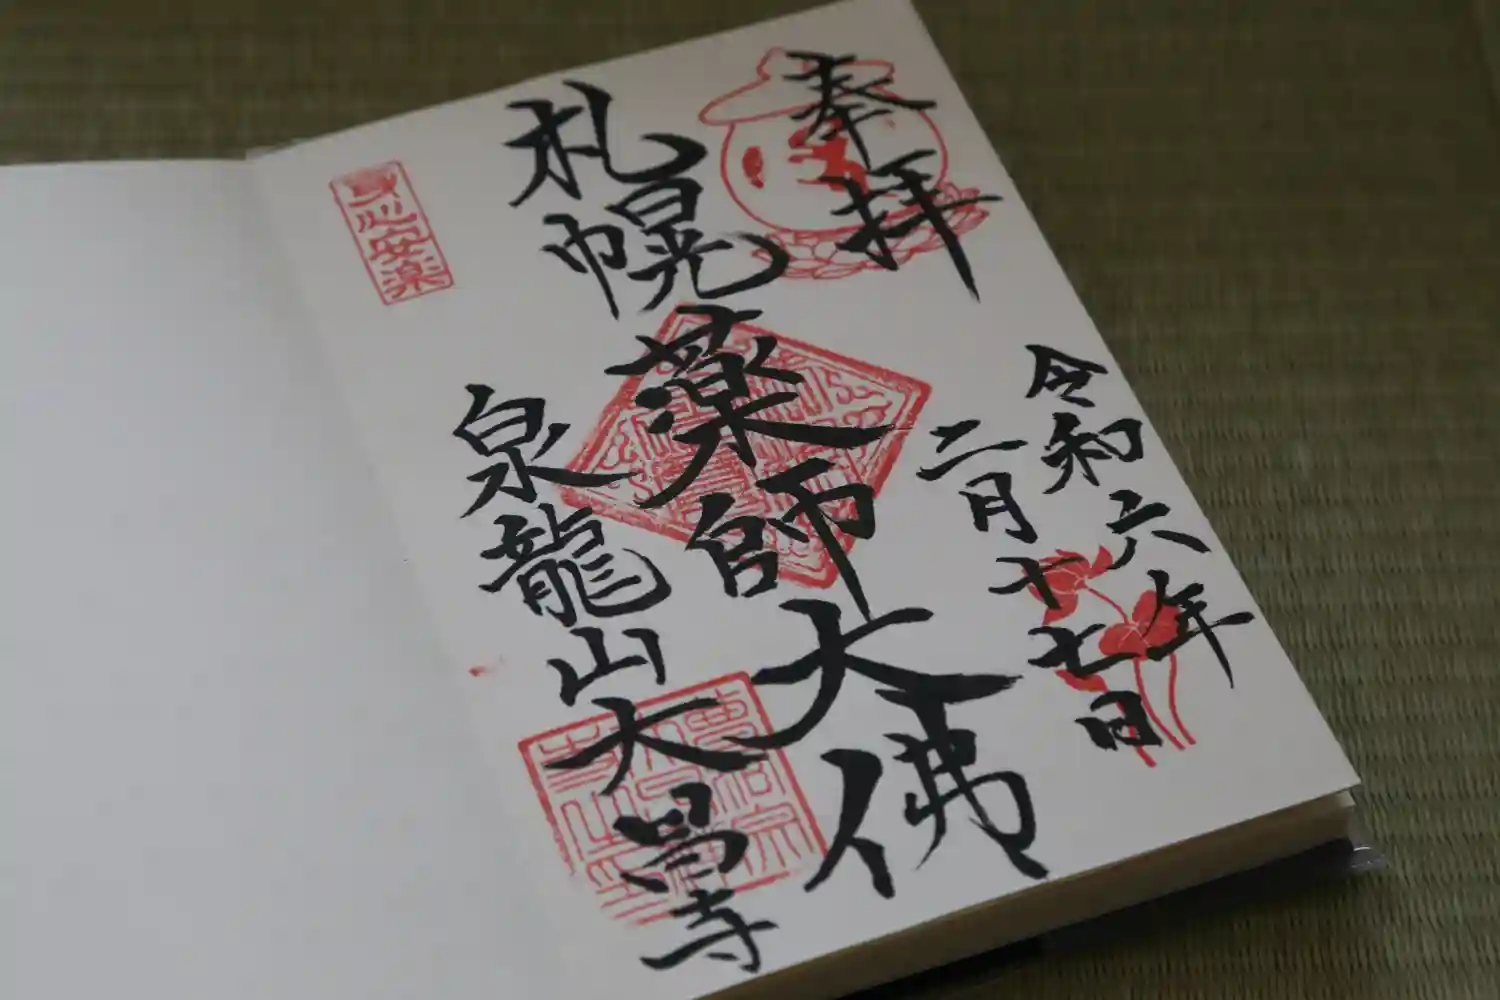 奉拝
令和六年
二月十七日
札幌薬師大佛
泉龍山大昌寺
身心安楽